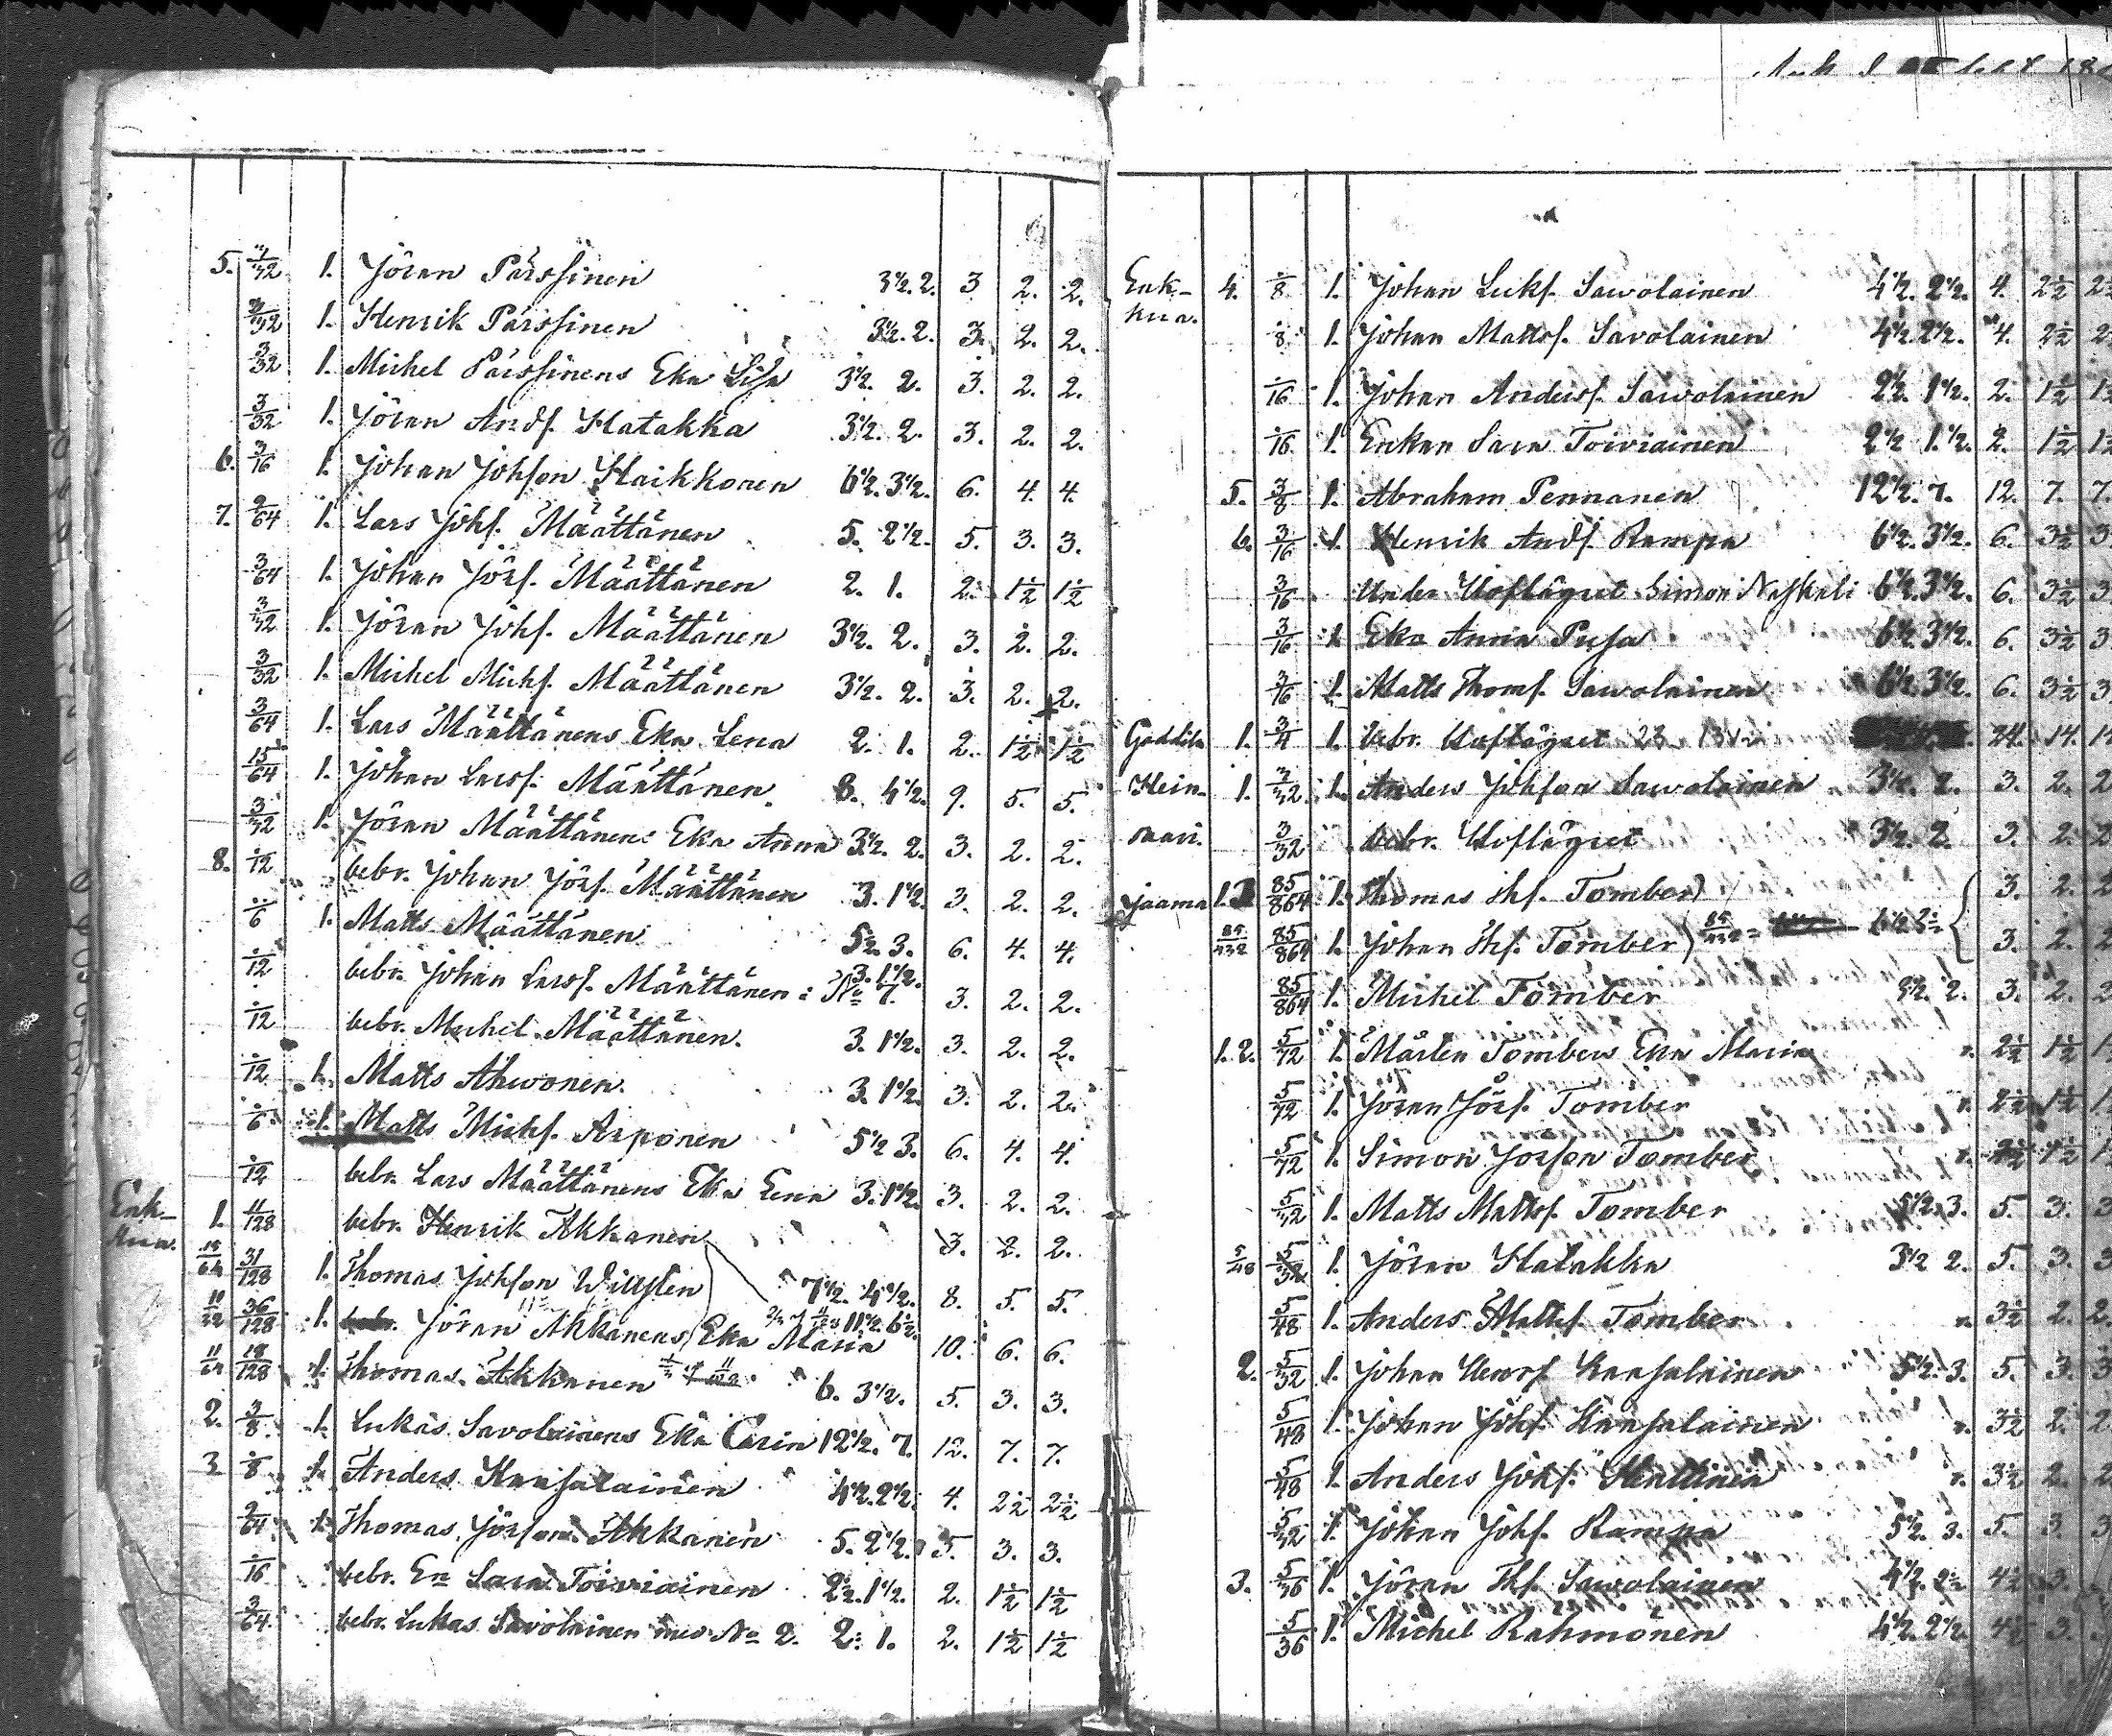 5. 3/32 1. Jöran Pärssinen 3½. 2. 3 2. 2.
3/32 1. Henrik Pärssinen 3½. 2. 3. 2. 2.
3/32 1. Michel Pärssinens Eka Lisa 3½. 2. 3. 2. 2.
3/32 1. Jöran Andf. Hatakka 3½. 2. 3. 2. 2.
6. 3/16 1. Johan Johfson Haikkonen 6½. 3½. 6. 4. 4.
7. 9/64 1. Lars Johf. Määttänen 5. 2½. 5. 3. 3.
3/64 1. Johan Jörf. Määttänen 2. 1. 2. 1½ 1½
3/32 1. Jöran Johf. Määttänen 3½. 2. 3. 2. 2.
3/32 1. Michel Michf. Määttänen 3½. 2. 3. 2. 2.
3/64 1. Lars Määttänens Eka Lena 2. 1. 2. 1½ 1½
15/64 1. Johan Larsf. Määttänen. 8. 4½. 9. 5. 5.
3/32 1. Jöran Määttänens Eka Anna 3½. 2. 3. 2. 2.
8. 1/12 bebr. Johan Jörf. Määttänen 3. 1½. 3. 2. 2.
1/6 1. Matts Määttänen 5½. 3. 6. 4. 4.
1/12 bebr. Johan Larsf. Määttänen: No 7. 3. 1½. 3. 2. 2.
1/12 bebr. Michel Määttänen. 3. 1½. 3. 2. 2.
1/12 1. Matts Ahwonen. 3. 1½. 3. 2. 2.
1/6 1. Matts Michf. Arponen 5½ 3. 6. 4. 4.
1/12 bebr. Lars Määttänens Eka Lena 3. 1½. 3. 2. 2.
Enk- 1. 11/128 bebr. Henrik Akkanen 3. 2. 2.
kua. 31/128 1. Thomas Johfson 7½. 4½. 8. 5. 5.
36/128 1. Jöran Akkanens Eka Maria 11½. 6½. 10. 6. 6.
11/64 18/128 1. Thomas Akkanen 6. 3½. 5. 3. 3.
2. 3/8 1. Lukas Savolainens Eka Carin 12½. 7. 12. 7. 7.
3 1/8 1. Anders Kansalainen 4½. 2½. 4. 2½ 2½
9/64 1. Thomas Jörfson Akkanen 5. 2½. 5. 3. 3.
1/16 bebr. En Sara Toiviainen 2½. 1½. 2. 1½ 1½
3/64 bebr. Lukas Savolainen No 2. 2. 1. 2. 1½ 1½
Enk- 4. 1/8 1. Johan Lukf. Sawolainen 4½. 2½. 4. 2½
kua.
1/8 1. Johan Mattsf. Savolainen 4½. 2½. 4. 2½
1/16 1. Johan Andersf. Sawolainen 2½. 1½. 2. 1½
1/16 1. Enkan Sara Toiviainen 2½ 1½. 2. 1½
5. 3/8 1. Abraham Pennanen 12½. 7. 12. 7. 7.
6. 3/16 1. Henrik Andf. Rampa 6½. 3½. 6. 3½
3/16 Under Hoflägret Simon 6½. 3½. 6. 3½
3/16 1. Eka Anna Pusa 6½ 3½. 6. 3½
3/16 1. Matts Thomf. Sawolainen 6½ 3½. 6. 3½
1. 3/4 1. bebr. Hoflägret 24. 14.
Hein- 1. 3/32 1. Anders Johfson Sawolainen 3½. 2. 3. 2.
saari. 3/32 bebr. Hoflägret 3½. 2. 3. 2.
Jaama 85/864 1. Thomas Thf. Tomber 3. 2.
85/432 85/864 1. Johan Thf. Tomber 3. 2.
85/864 1. Michel Tomber 3½. 2. 3. 2.
1. 2. 5/72 1. Mårten Tombers Eka Maria 2½ 1½
5/72 1. Jöran Jörf. Tomber 2½ 1½
5/72 1. Simon Jorfson Tomber 2½ 1½
5/32 1. Matts Mattsf. Tomber 5½. 3. 5. 3.
5/48 1. Jöran Hatakka 3½ 2. 5. 3.
5/48 1. Anders Mattsf. Tomber 3½ 2.
2. 5/32 1. Johan Henrf. Kansalainen 5½. 3. 5. 3.
5/48 1. Johan Johf. Kansalainen 3½ 2.
5/48 1. Anders Johf. Henttinen 3½ 2.
5/32 1. Johan Johf. Rampa 5½. 3. 5. 3.
3. 5/36 1. Jöran Thf. Sawolainen 4½. 2½ 4½ 3.
5/36 1. Michel Rahmonen 4½. 2½. 4½ 3.